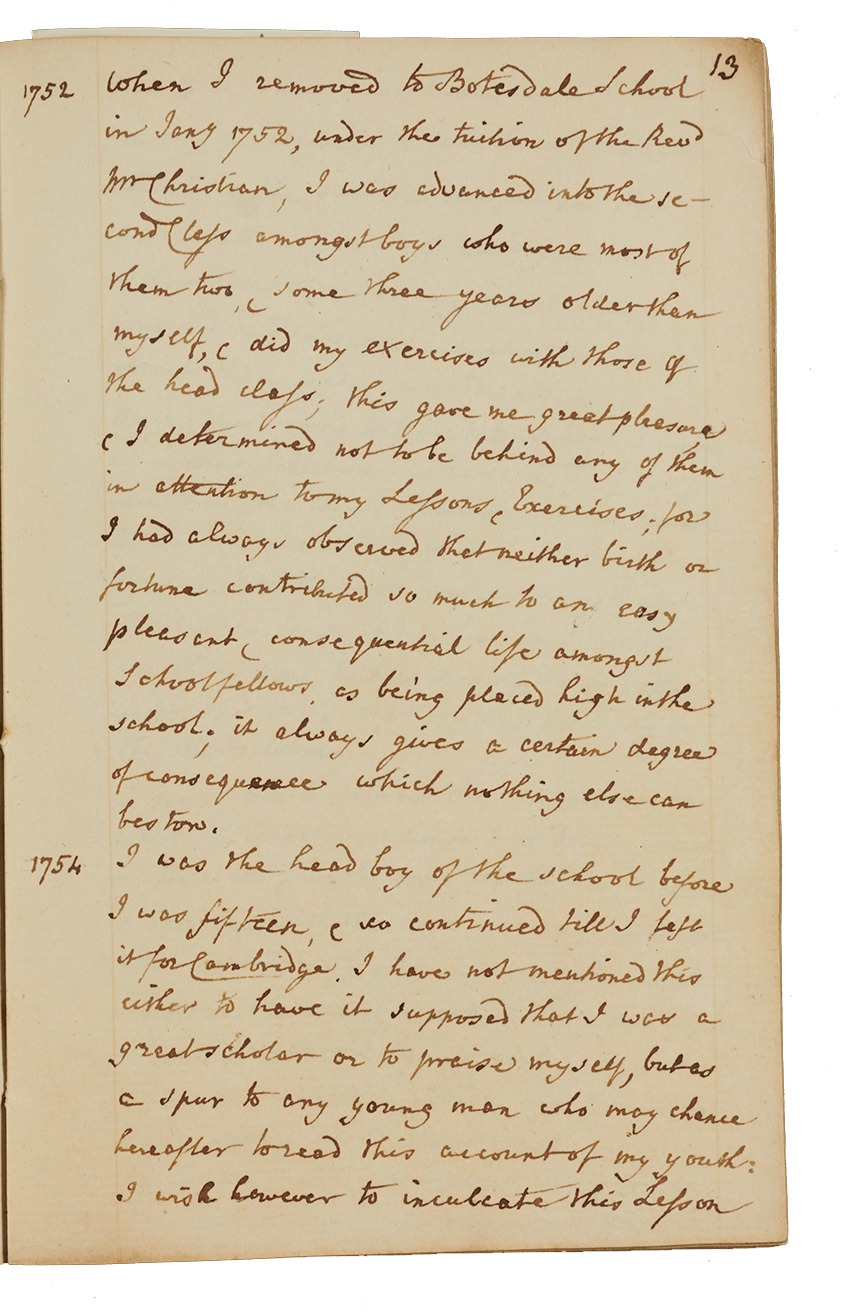 13
1752 when I removed to Botesdale School
in Jany 1752, under the tuition of the Revd
Mr Christian, I was advanced into the se-
cond Class amongst boys who were most of
them two, & some three years older than
myself, & did my exercises with those of
the head class; this gave me great pleasure
& I determined not to be behind any of them
in attention to my Lessons & Exercises; for
I had always observed that neither birth or
fortune contributed so much to an easy
pleasant & consequential life amongst
Schoolfellows, as being placed high in the
school; it always gives a certain degree
of consequence which nothing else can
bestow.
1754 I was the head boy of the school before
I was fifteen, & so continued till I left
it for Cambridge. I have not mentioned this
either to have it supposed that I was a
great scholar or to praise myself, but as
a spur to any young man who may chance
hereafter to read this account of my youth:
I wish however to inculcate this Lesson